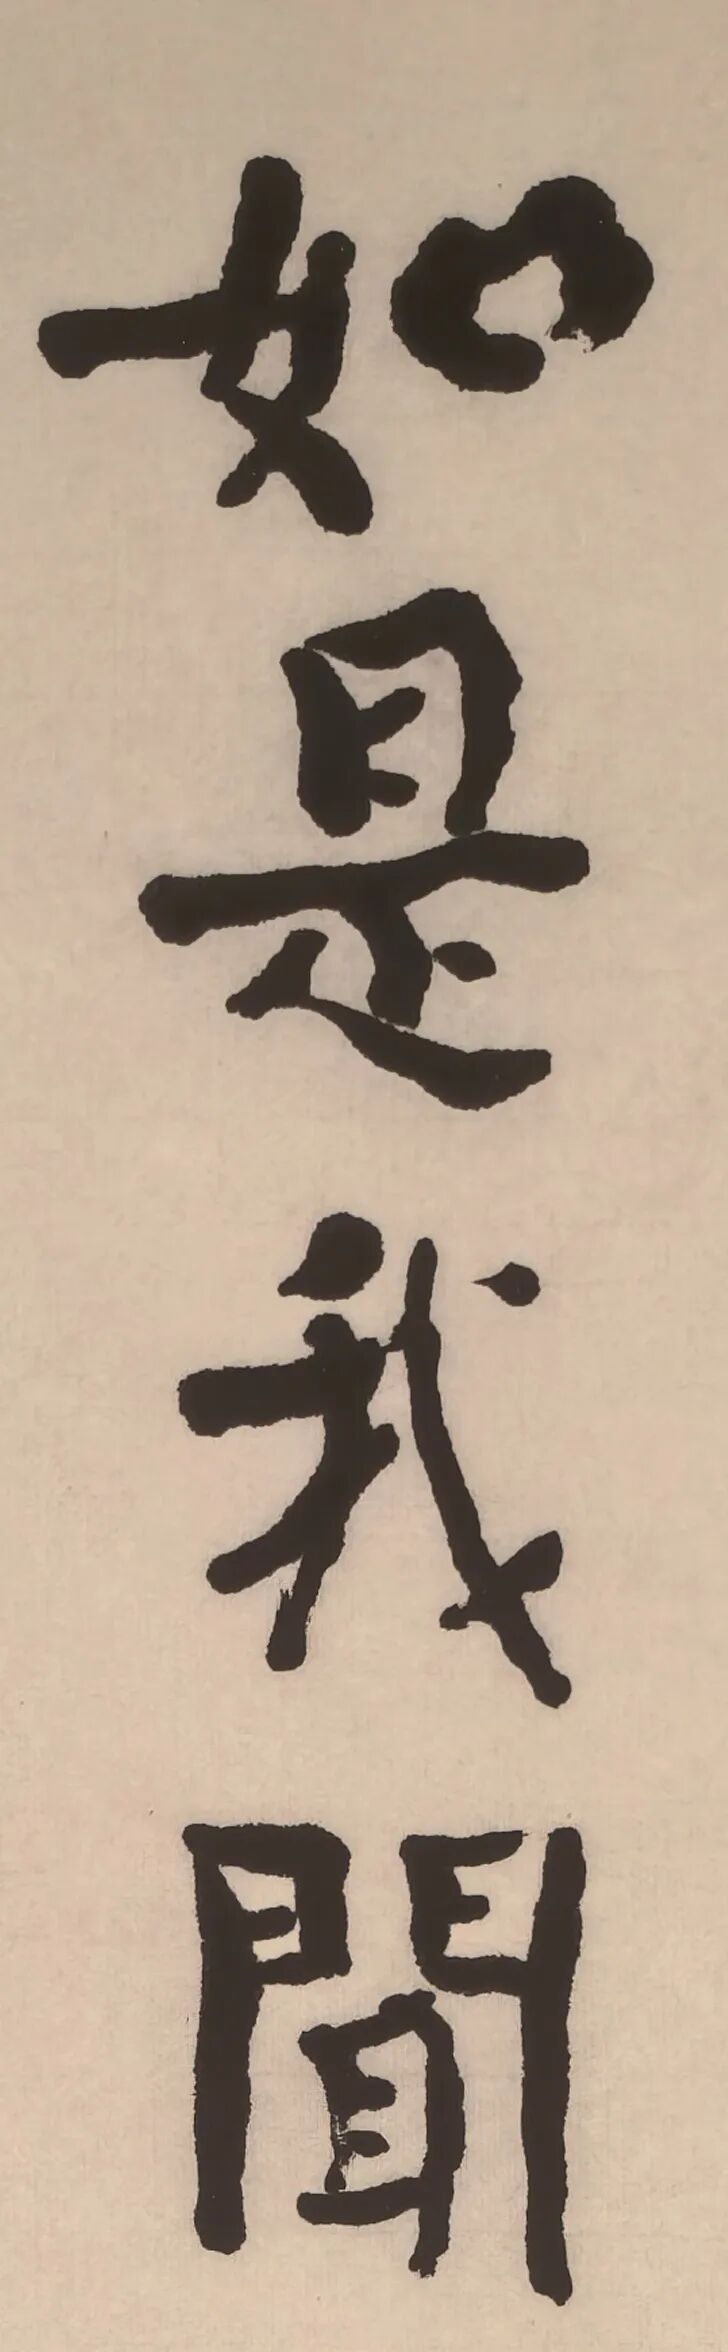 如是我聞